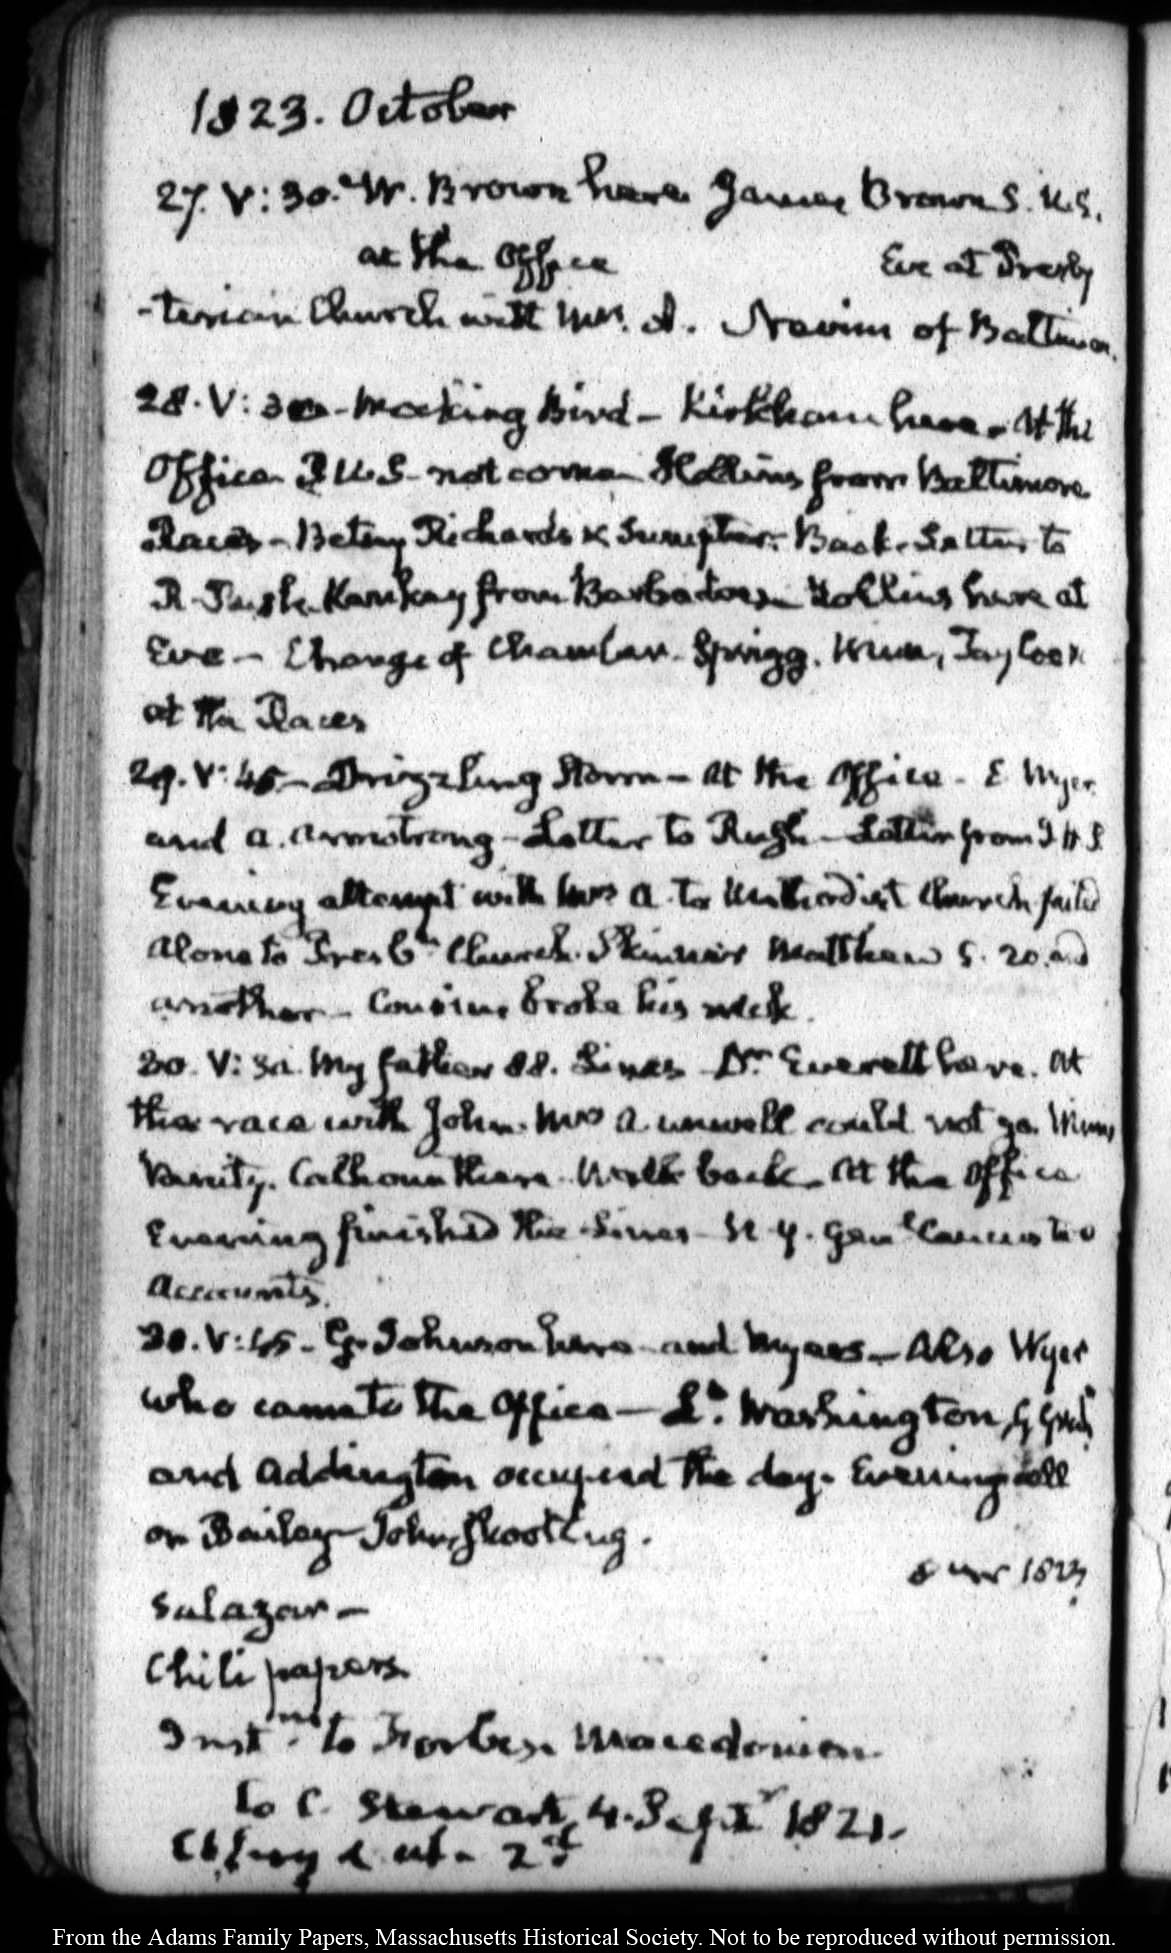 1823. October
27. V:30. W. Brown here James Brown S. U.S.
at the Office Eve at Presby
-terian Church with Mrs. A. Nevins of Baltimore.
28. V:30 - Mocking Bird - Kirkham here. At the
Office P U.S. not come Hollins from Baltimore
Races - Betsey Richards & Sumpter. Back. Letter to
R. Rush. from Barbadoes - Hollins here at
Eve - Change of Chamber. Sprigg. Tayloe
at the Races
29. V:45 - Drizzling Storm - At the Office - E Wyer
and A. Armstrong - Letter to Rush - Letter from
Evening attempt with Mrs A. to Methodist Church failed
alone to Presbn. Church. Skinner's Matthew 5. 20. and
another - Cousin broke his neck.
30. V:30. My father 88. Lines Dr. Everett here. At
the race with John. Mrs A. unwell could not go.
Vanity. Calhoun there. Walk back. At the Office
Evening finished the Lines - N.Y. Genl.
Accounts.
30. V:45 - G. Johnson here and Myers - Also Wyer
who came to the Office - Lt. Washington, G.
and Addington occupied the day. Evening call
on Bailey - John, shooting.
1823
Salazar -
Chili papers.
Instns. to Forbes. Macedonian
to C. Stewart, 4. Septr 1821.
2d